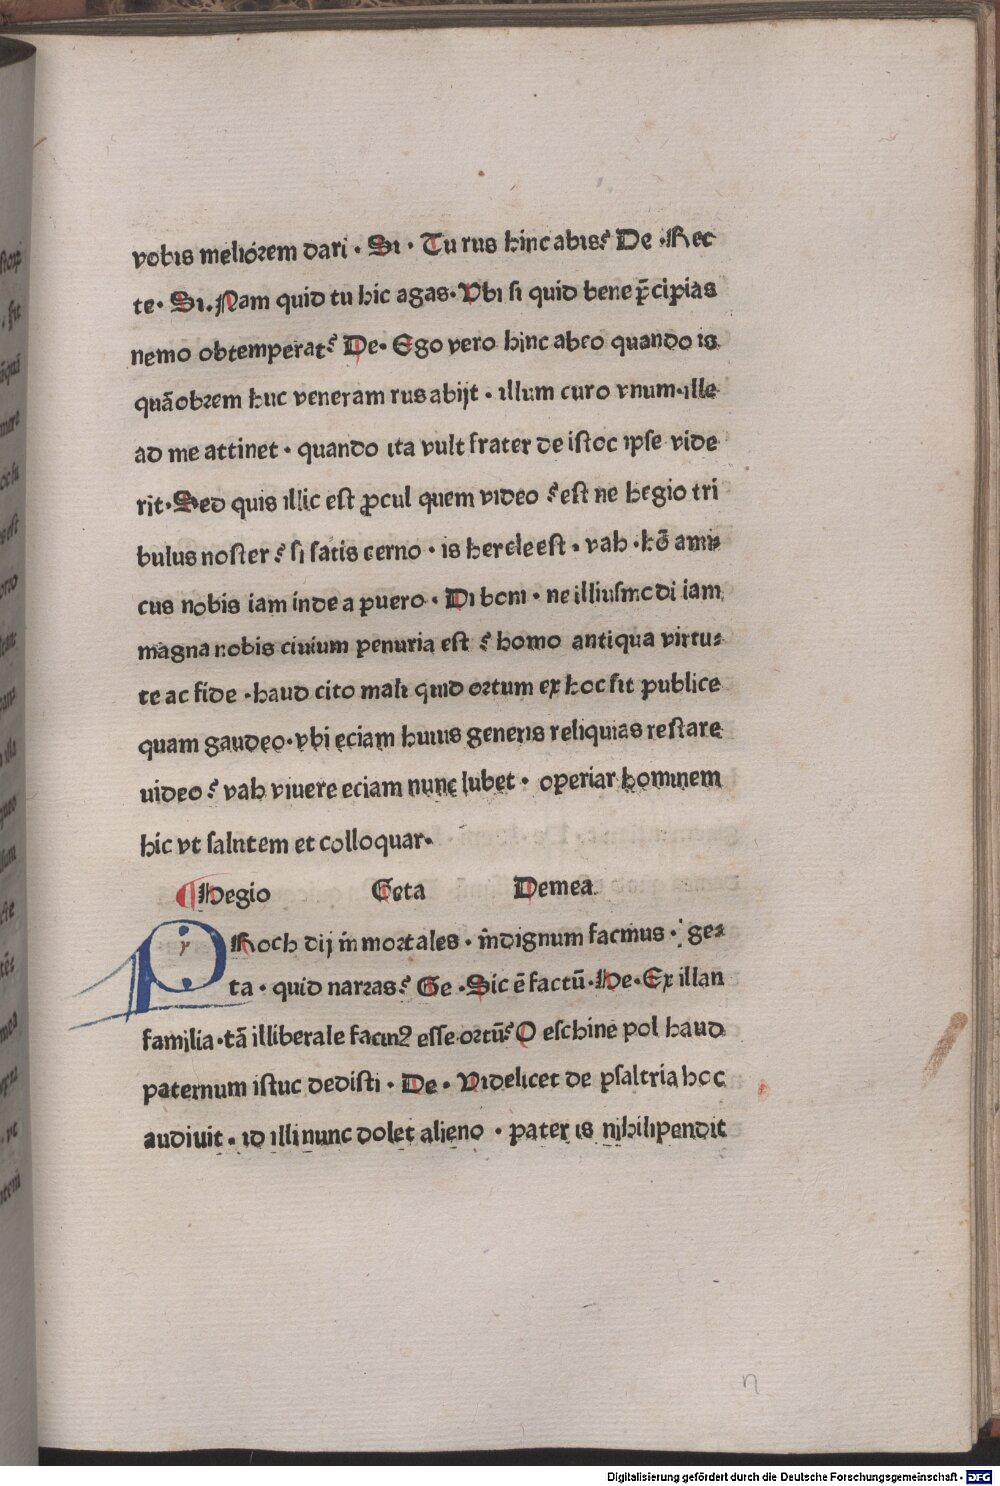 vobis meliorem dari · Si · Tu rus hinc abis? De · Rec
te · Si. Nam quid tu hic agas · Vbi si quid bene p̄cipias
nemo obtemperat? De · Ego vero hinc abeo quando is
quãobrem huc veneram rus abijt · illum curo vnum · ille
ad me attinet · quando ita vult frater de istoc ipse vide
rit · Sed quis illic est ꝓcul quem video ? est ne hegio tri
bulus noster ? si satis cerno · is hercle est · vah · hõ ami
cus nobis iam inde a puero · Di boni · ne illiusmodi iam
magna nobis ciuium penuria est ? homo antiqua virtu⸗
te ac fide · haud cito mali quid ortum ex hoc fit publice
quam gaudeo · vbi eciam huius generis reliquias restare
uideo ? vah viuere eciam nunc lubet · operiar hominem
hic vt salutem et colloquar ·
¶ Hegio Geta Demea
PRoch dij im mortales · indignum facinus · ge⸗
ta · quid narras ? Ge · Sic ẽ factũ · He · Ex illan
familia · tã illiberale facinꝰ esse ortũ? O eschine pol haud
paternum istuc dedisti · De · Videlicet de psaltria hoc
audiuit · id illi nunc dolet alieno · pater is nihilipendit
n
Digitalisierung gefördert durch die Deutsche Forschungsgemeinschaft · DFG